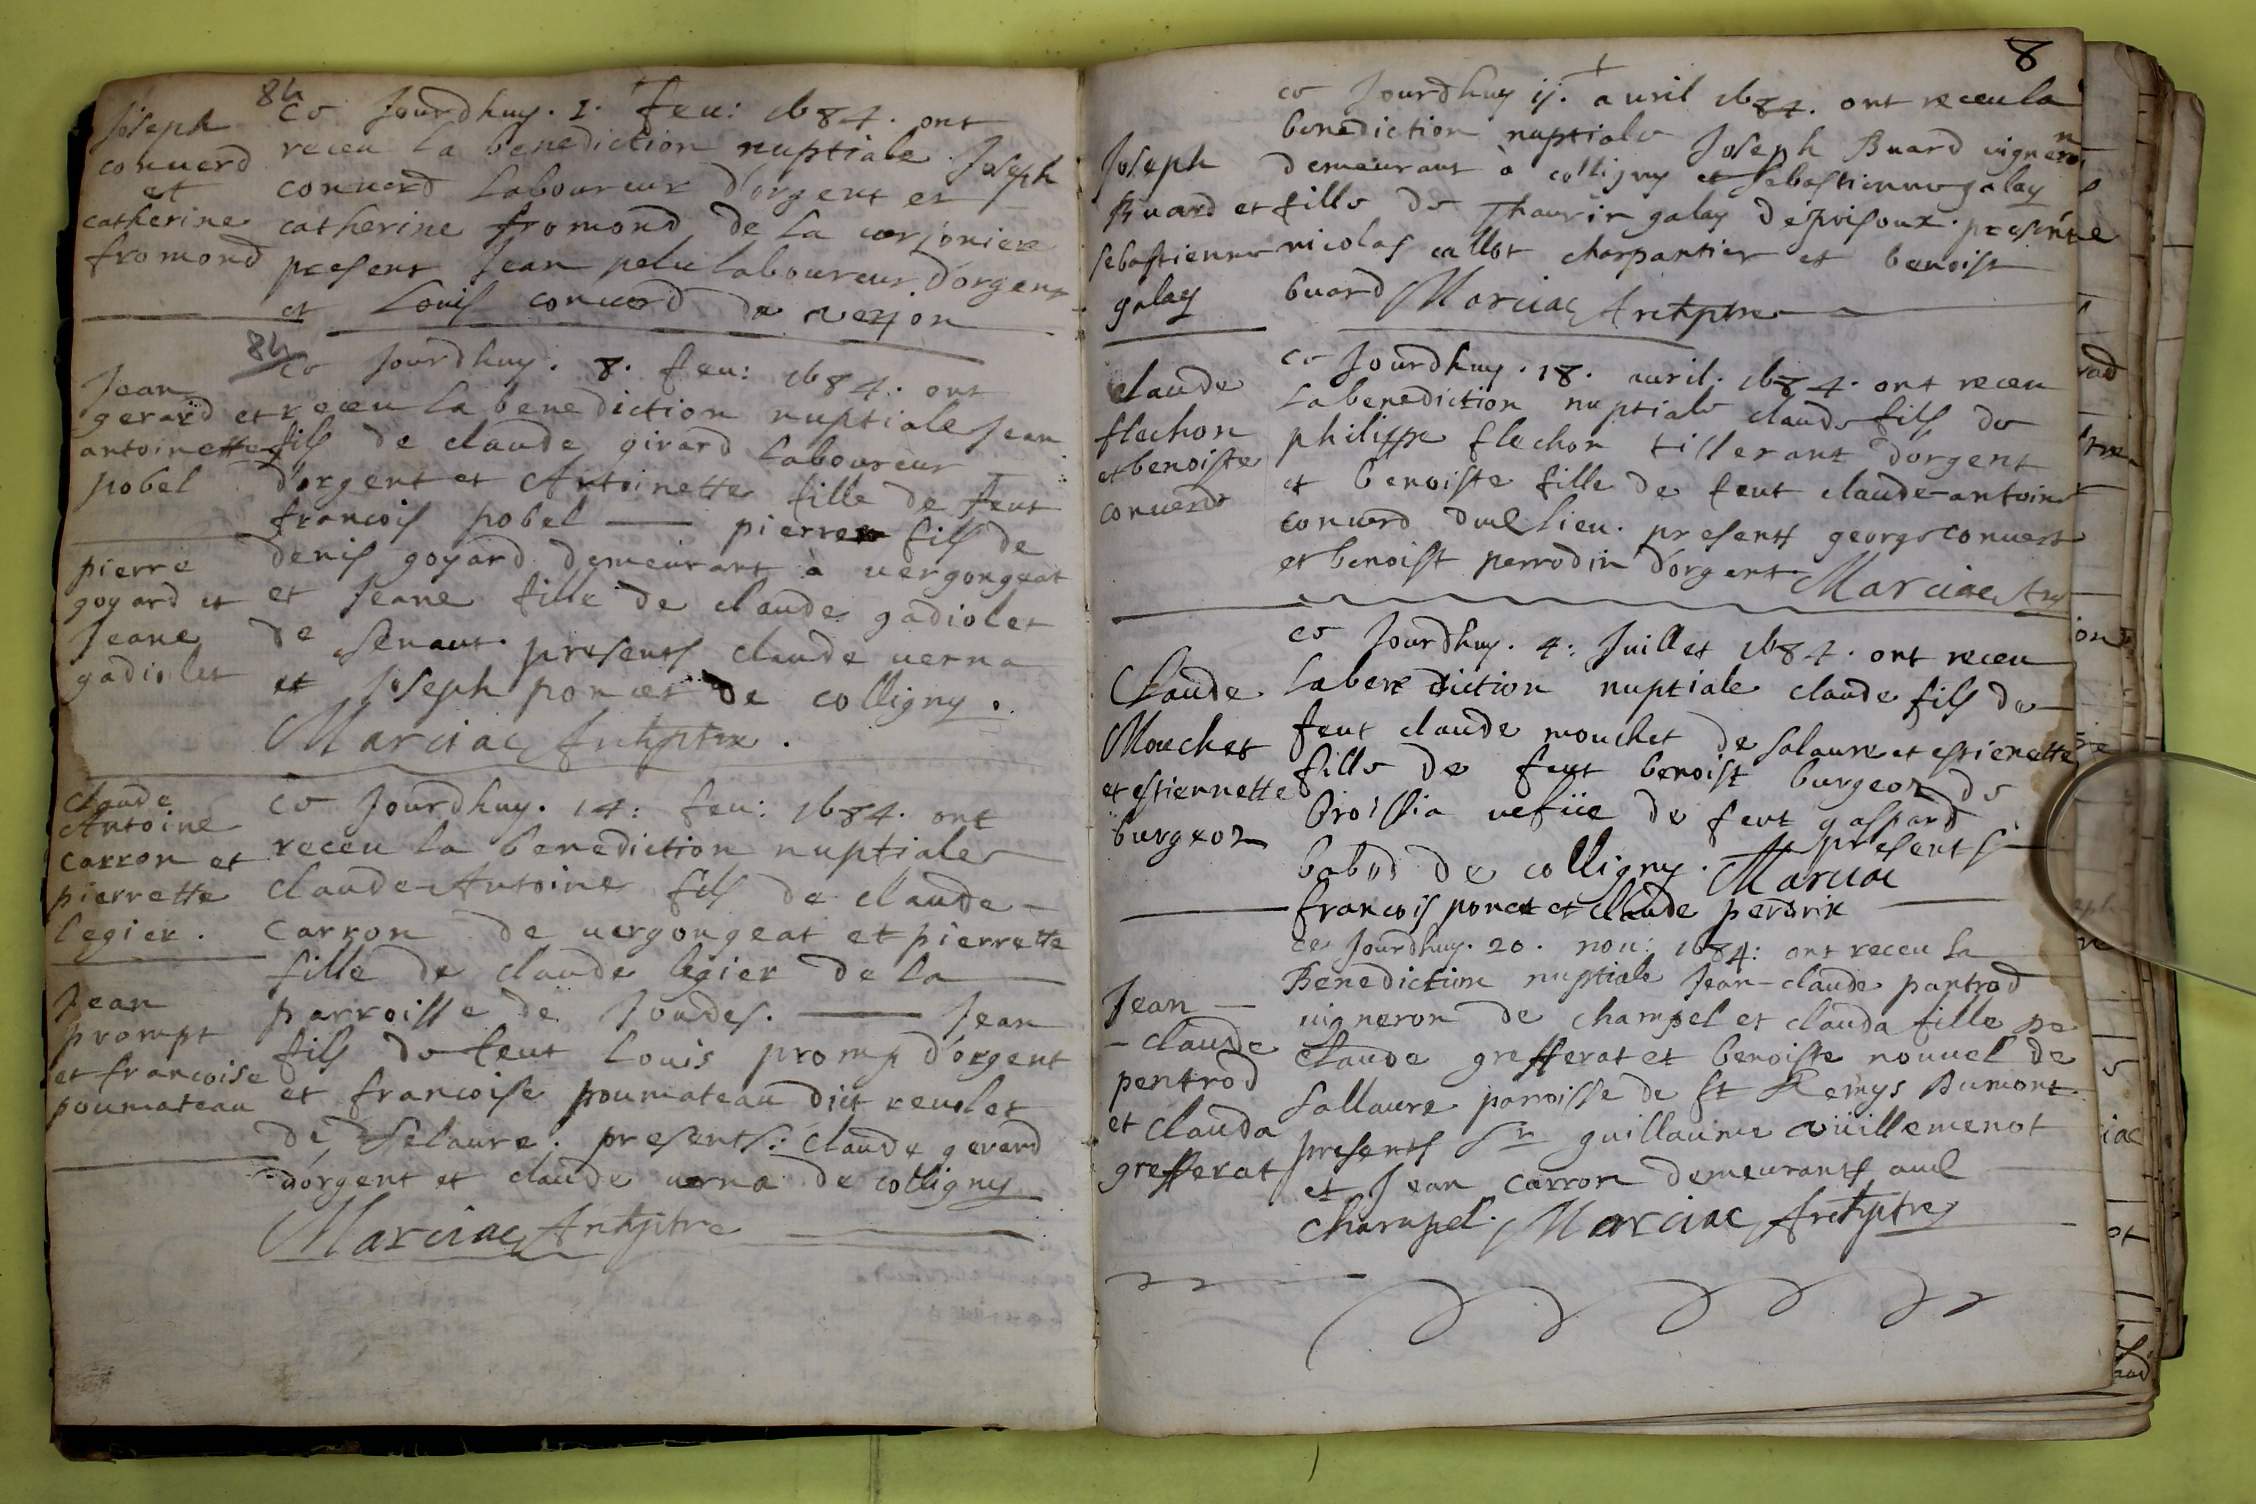 84
Joseph
conuerd
et
catherine
fromond
ce Jourdhuy. 1. feu: 1684. ont
receu la benediction nuptiale Joseph
conuerd laboureur d'orgent et
catherine fromond de la
present Jean pelu laboureur d'orgent
et Louis conuerd de verjon
84
Jean
gerard et
antoinette
pobel
ce Jourdhuy. 8. feu: 1684. ont
receu la benediction nuptiale Jean
fils de claude girard laboureur
d'orgent et Antoinette fille de feut
francois pobel pierre fils de
denis goyard demeurant à uergongeat
et Jeane fille de claude gadiolet
de senaut. presents claude uerna
et Joseph poncet de colligny.
Marciac Archptre.
pierre
goyard et
Jeane
gadiolet
claude
Antoine
carron et
pierrette
legier.
ce Jourdhuy. 14: feu: 1684. ont
receu la benediction nuptiale
claude-Antoine fils de claude
carron de uergongeat et pierrette
fille de claude legier de la
parroisse de Joudes. Jean
fils de feut Louis promp d'orgent
et francoise poumateau dict reuolet
de Selaure. presents: claude gerard
d'orgent et claude uerna de colligny
Marciac Archptre
Jean
prompt
et francoise
poumateau
8
ce Jourdhuy ij. auril 1684. ont receu la
benediction nuptiale Joseph Buard uigneron
demeurant à colligny et sebastienne galay
fille de galay present
nicolas callot charpantier et benoist
buard Marciac Archptre
Joseph
Buard et
sebastienne
galay
claude
flechon
et benoiste
conuerd
ce Jourdhuy. 18. auril. 1684. ont receu
la benediction nuptiale claude fils de
philippe flechon tisserant d'orgent
et benoiste fille de feut claude-antoine
conuerd dud lieu. presents george conuert
et benoist perrodin d'orgent Marciac
ce Jourdhuy. 4: Juillet 1684. ont receu
la benediction nuptiale claude fils de
feut claude mouchet de salaure et estienette
fille de feut benoist burgeon de
broissia uefue de feut gaspard
babod de colligny. presents
Marciac
francois poncet et claude perdrix
Claude
Mouchet
et estiennette
burgeon
ce Jourdhuy. 20. nou: 1684: ont receu la
Benediction nuptiale Jean-claude pantrod
uigneron de champel et clauda fille de
claude grefferat et benoiste nouuel de
sallaure parroisse de st Remys Dumont
presents Sr guillaume vüillemenot
et Jean carron demeurants aud
champel. Marciac Archptre
Jean
- claude
pentrod
et clauda
grefferat